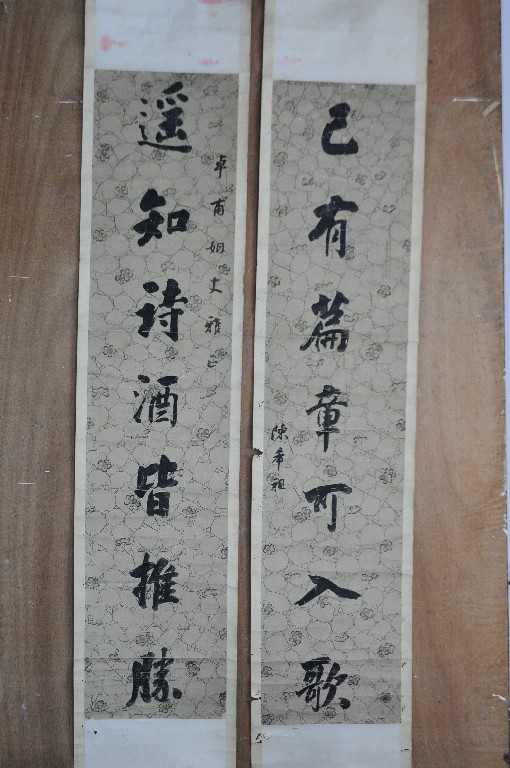 卓甫姻丈雅正
遥知詩酒皆推勝
已有篇章可入歌
陳希祖